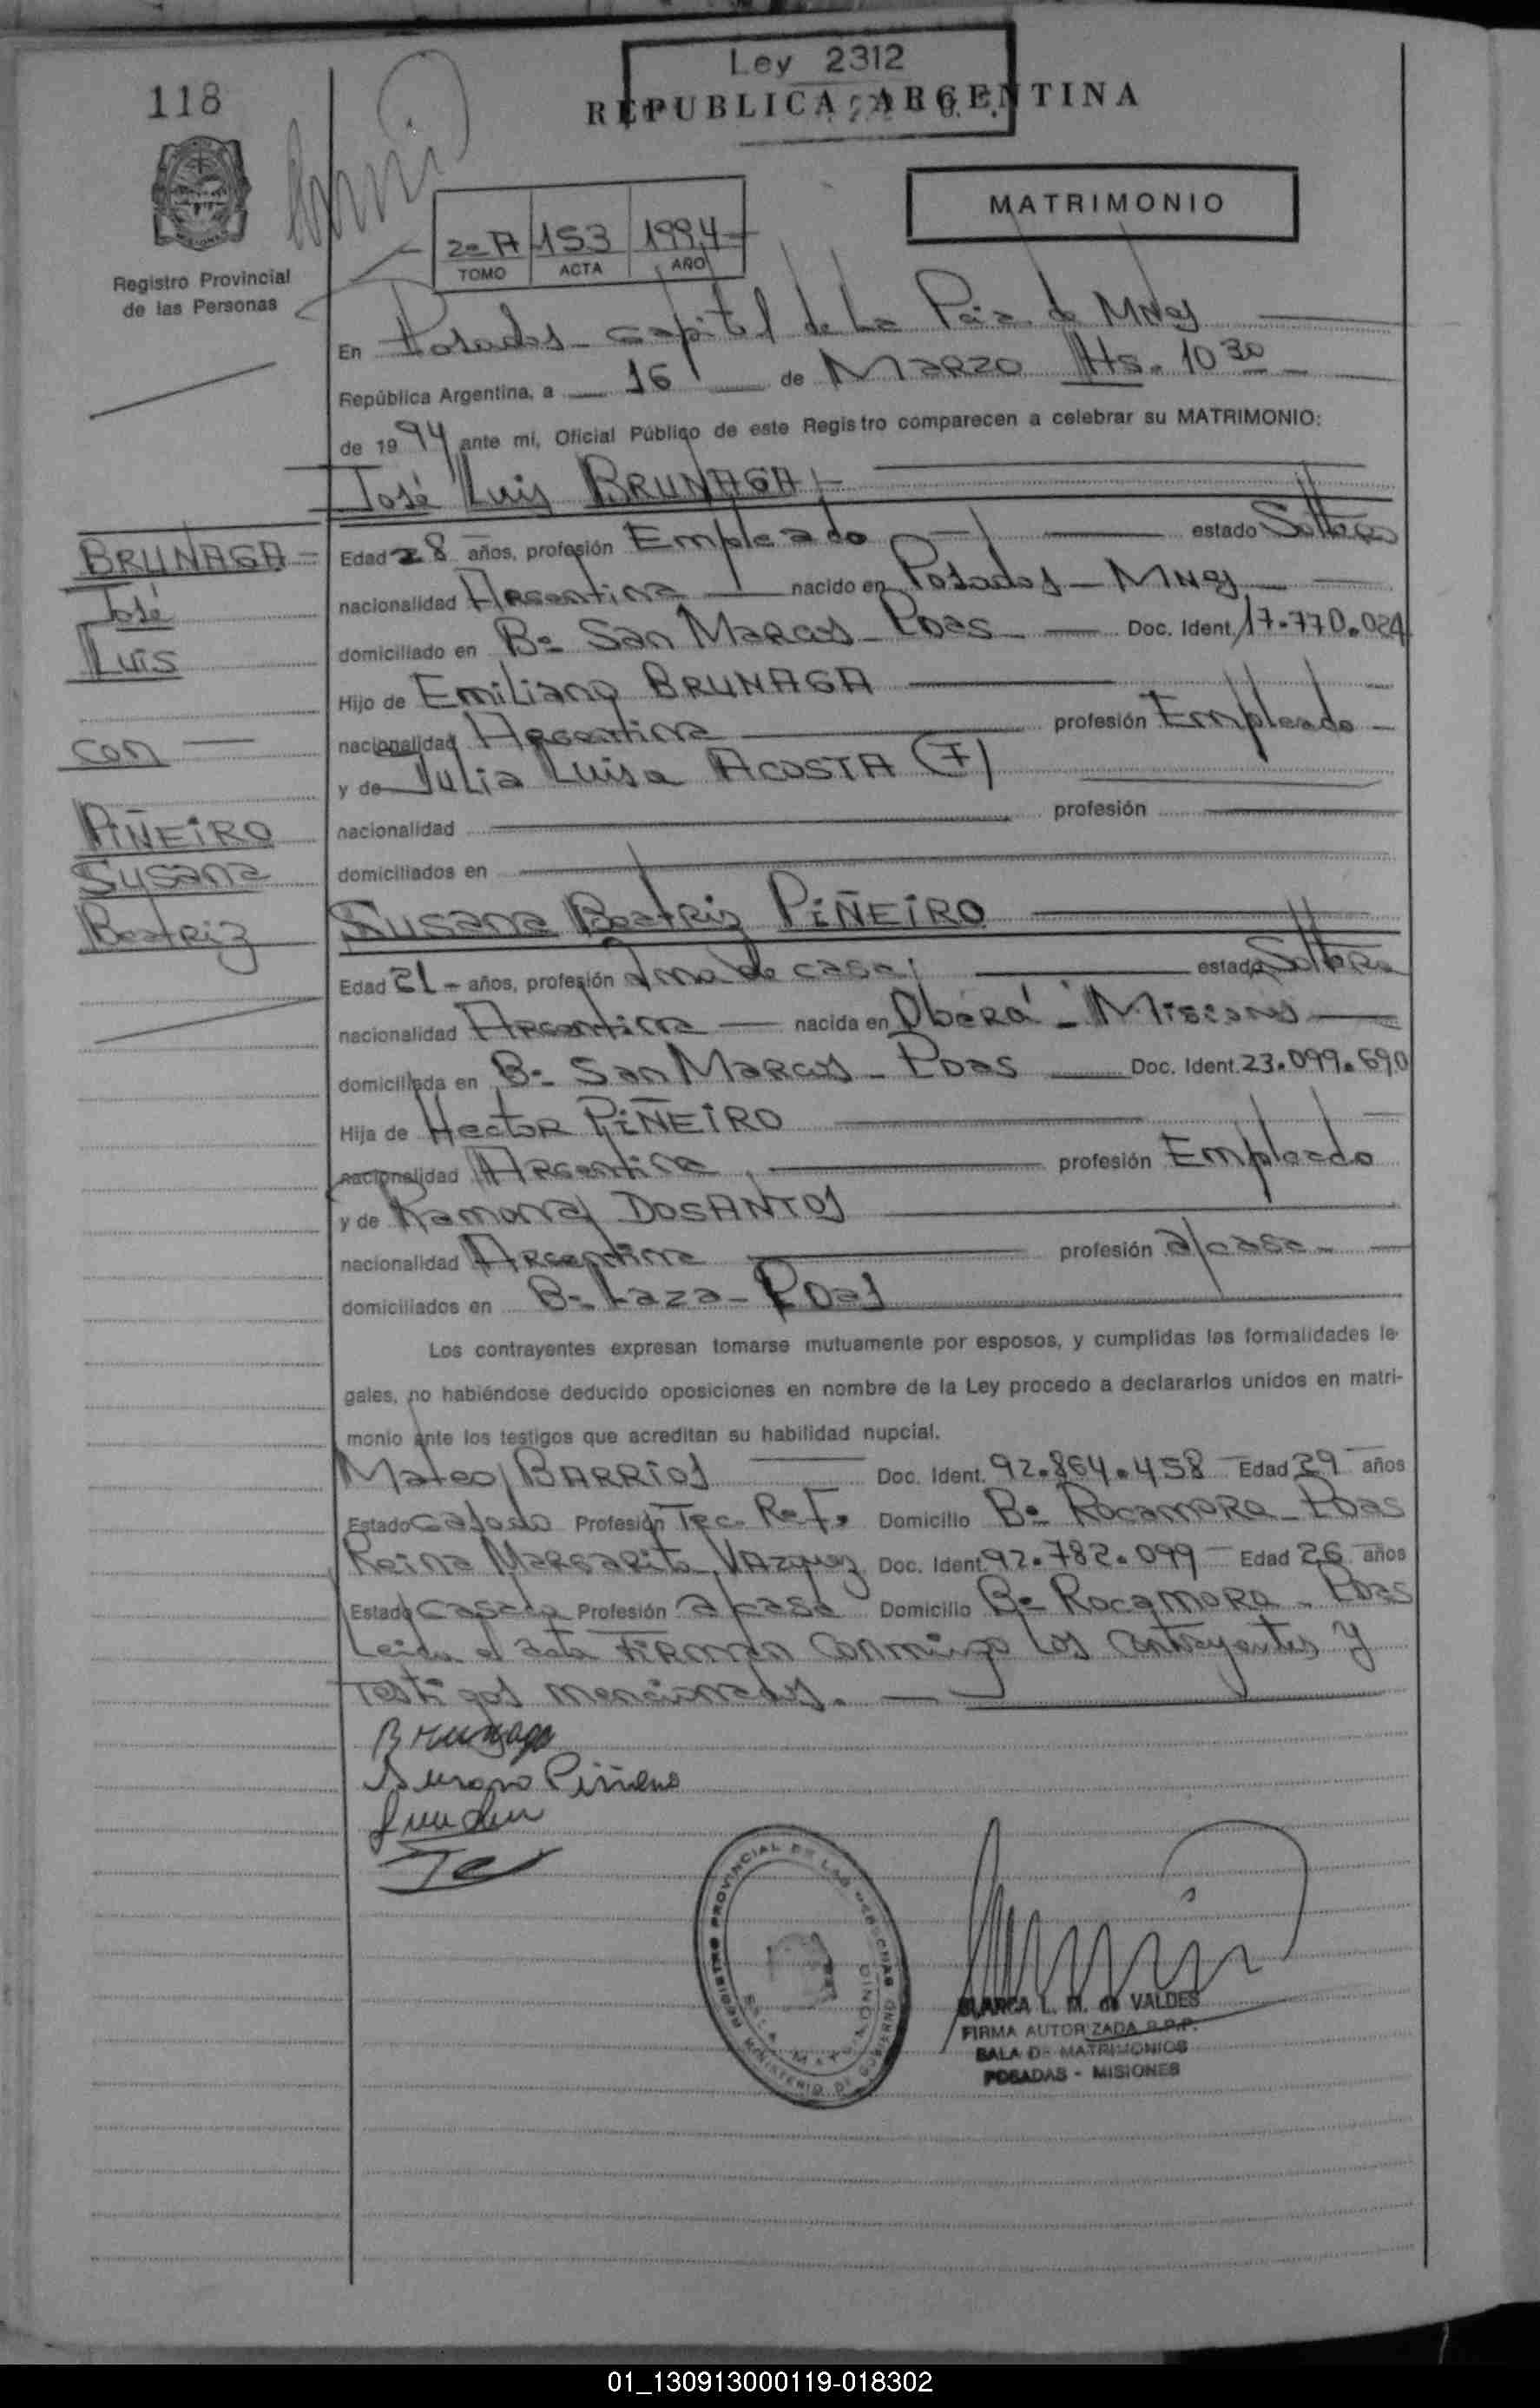 Ley 2312
118
REPUBLICA ARGENTINA
MATRIMONIO
2º A 153 1994
TOMO ACTA AÑO
Registro Provincial
de las Personas
En Posadas - Capital de La Pcia. de Mnes
República Argentina, a 16 de Marzo Hs. 10 30
de 1994 ante mi, Oficial Público de este Registro comparecen a celebrar su MATRIMONIO:
José Luis BRUNAGA
BRUNAGA
José
Luis
con
PIÑEIRO
Susana
Beatriz
Edad 28 años, profesión Empleado estado Soltero
nacionalidad Argentina nacido en Posadas - Mnes
domiciliado en Bº San Marcos - Pdas Doc. Ident. 17.770.024
Hijo de Emiliano BRUNAGA
nacionalidad Argentina profesión Empleado
y de Julia Luisa ACOSTA (F)
nacionalidad profesión
domiciliados en
Susana Beatriz PIÑEIRO
Edad 21 años, profesión Ama de casa estado Soltera
nacionalidad Argentina nacida en Oberá - Misiones
domiciliada en Bº San Marcos - Pdas Doc. Ident. 23.099.690
Hija de Hector PIÑEIRO
nacionalidad Argentina profesión Empleado
y de Ramona DOSANTOS
nacionalidad Argentina profesión a/casa
domiciliados en Bº Laza - Pdas
Los contrayentes expresan tomarse mutuamente por esposos, y cumplidas las formalidades le-
gales, no habiéndose deducido oposiciones en nombre de la Ley procedo a declararlos unidos en matri-
monio ante los testigos que acreditan su habilidad nupcial.
Mateo BARRIOS Doc. Ident. 92.864.458 Edad 29 años
Estado Casado Profesión Tec. Ref. Domicilio Bº Rocamora - Pdas
Reina Margarita VAZquez Doc. Ident. 92.782.099 Edad 26 años
Estado Casada Profesión a/casa Domicilio Bº Rocamora - Pdas
Leida el acta Firman Conmigo Los Contrayentes y
Testigos mencionados.
Brunaga
Susana Piñeiro
REGISTRO PROVINCIAL DE LAS PERSONAS
MINISTERIO DE GOBIERNO
BLANCA L. M. de VALDES
FIRMA AUTORIZADA R.P.P.
SALA DE MATRIMONIOS
POSADAS - MISIONES
01_130913000119-018302